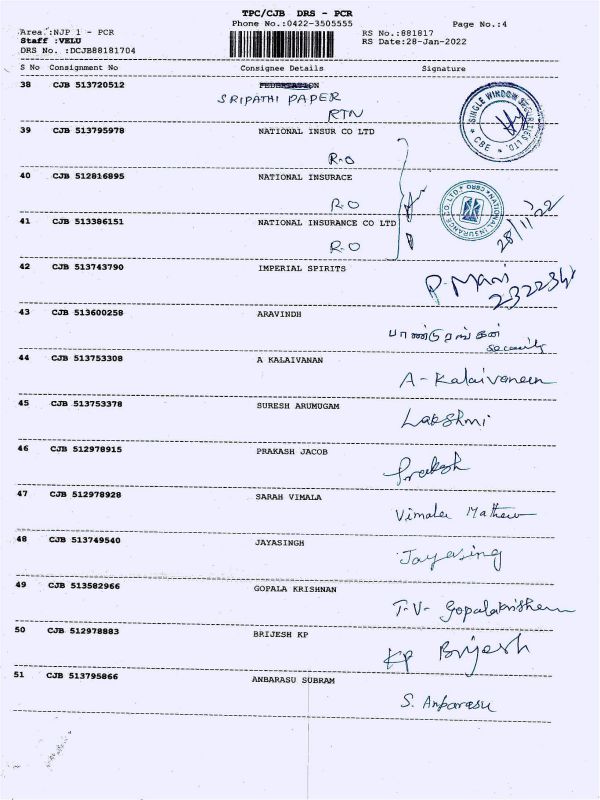 TPC/CJB DRS - PCR
Phone No.:0422-3505555
Page No.:4
Area :NJP 1 - PCR
RS No.:881817
Staff :VELU
RS Date:28-Jan-2022
DRS No. :DCJB88181704
S No Consignment No Consignee Details Signature
38 CJB 513720512 FEDERATION
SRIPATHI PAPER
RTN
SINGLE WINDOW SECURITIES LTD. * CBE *
39 CJB 513795978 NATIONAL INSUR CO LTD
R.O
40 CJB 512816895 NATIONAL INSURACE
R.O
NATIONAL INSURANCE CO LTD * CBRO *
41 CJB 513386151 NATIONAL INSURANCE CO LTD
R.O
28/11/22
42 CJB 513743790 IMPERIAL SPIRITS
P. Mani
43 CJB 513600258 ARAVINDH
பாண்டுரங்கன்
security
44 CJB 513753308 A KALAIVANAN
A-Kalaivaneen
45 CJB 513753378 SURESH ARUMUGAM
Lakshmi
46 CJB 512978915 PRAKASH JACOB
Prakash
47 CJB 512978928 SARAH VIMALA
Vimala Mathew
48 CJB 513749540 JAYASINGH
Jayasing
49 CJB 513582966 GOPALA KRISHNAN
T.V- Gopalakrishnan
50 CJB 512978883 BRIJESH KP
KP Brijesh
51 CJB 513795866 ANBARASU SUBRAM
S. Anbarasu